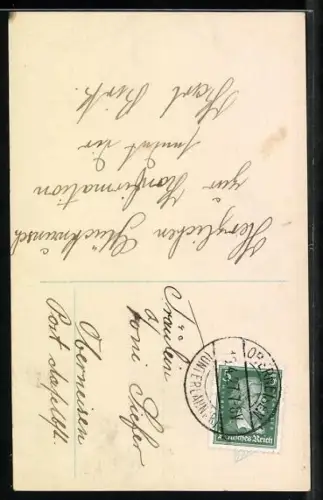 Herzlichen Glückwunsch
zur Konfirmation
sendet dir
Karl
Fräulein
Toni
Oberneisen
Post
OBERNEISEN
(UNTERLAHN
Deutsches Reich